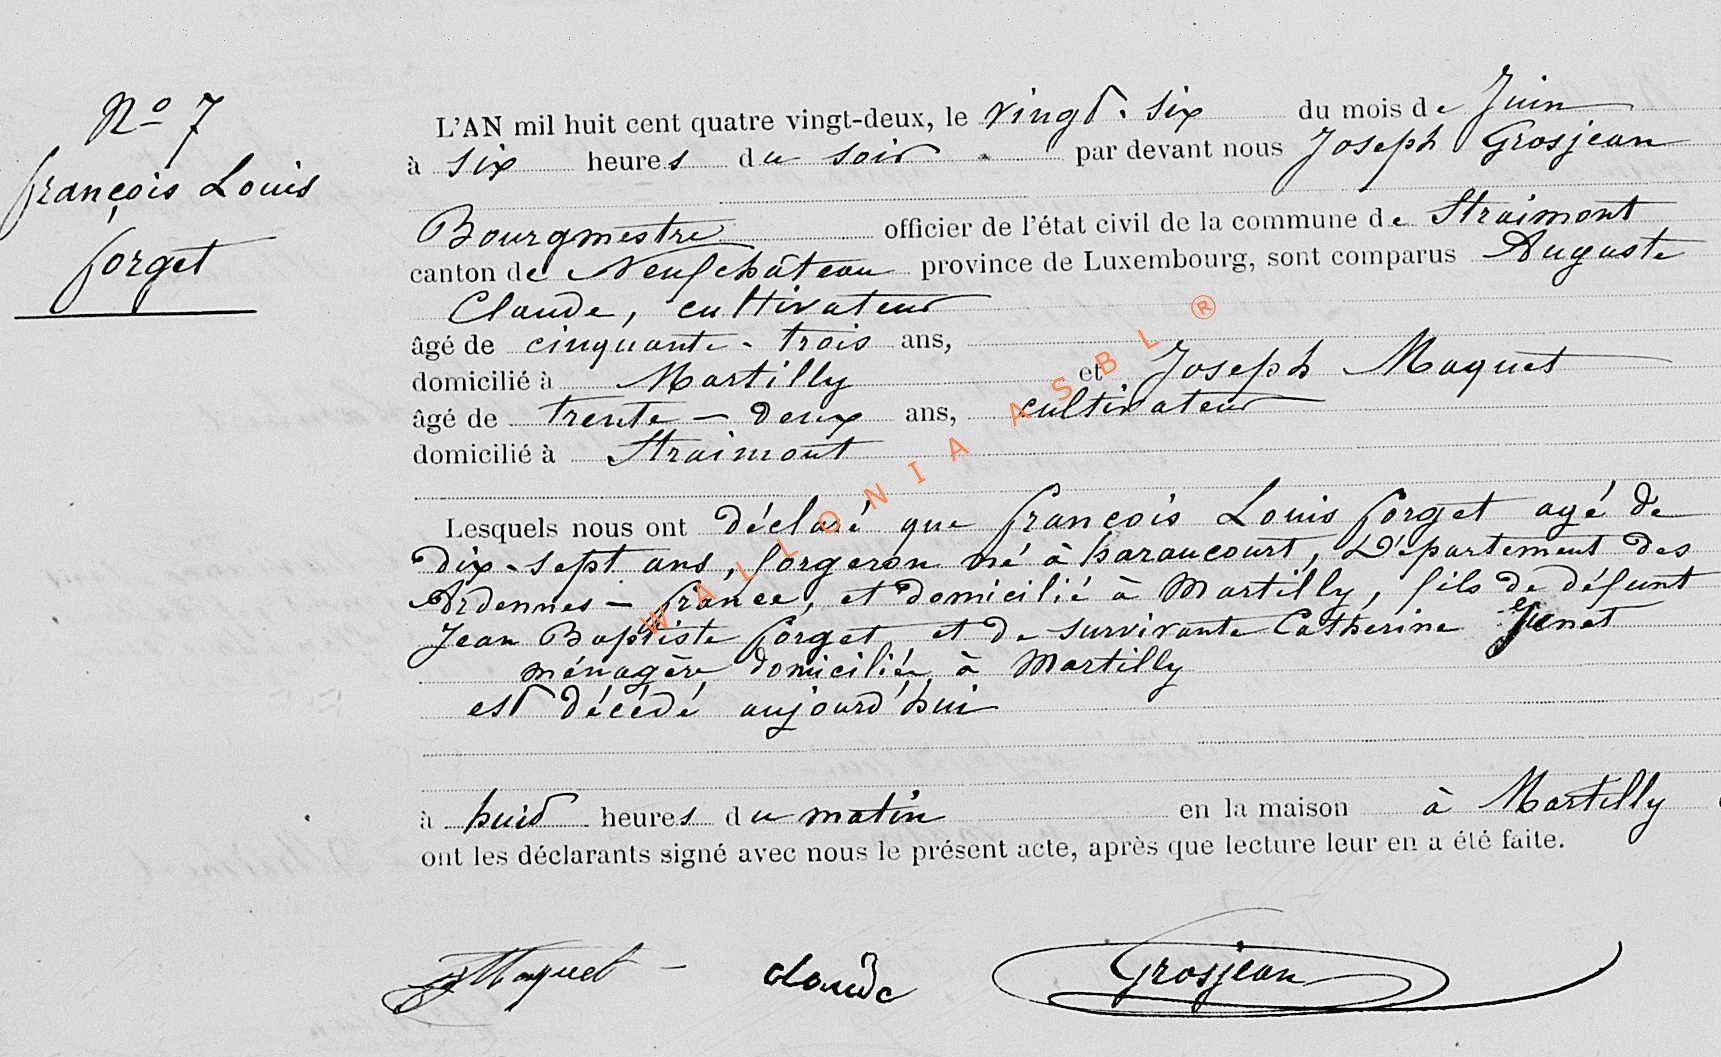 No 7
françois Louis
forget
L'AN mil huit cent quatre vingt-deux, le vingt-six du mois de Juin
à six heures du soir par devant nous Joseph Grosjean
Bourgmestre officier de l'état civil de la commune de Straimont
canton de Neufchâteau province de Luxembourg, sont comparus Auguste
Claude, cultivateur
âgé de cinquante-trois ans,
domicilié à Martilly et Joseph Maquet
âgé de trente-deux ans, cultivateur
domicilié à Straimont
Lesquels nous ont déclaré que françois Louis forget agé de
dix-sept ans, forgeron né à haraucourt, Département des
Ardennes - france, et domicilié à Martilly, fils de défunt
Jean Baptiste forget, et de survivante Catherine
ménagère domiciliée à Martilly
est décédé aujourd'hui
à huit heures du matin en la maison à Martilly
ont les déclarants signé avec nous le présent acte, après que lecture leur en a été faite.
J Maquet - claude Grosjean
WALLONIA ASBL ®